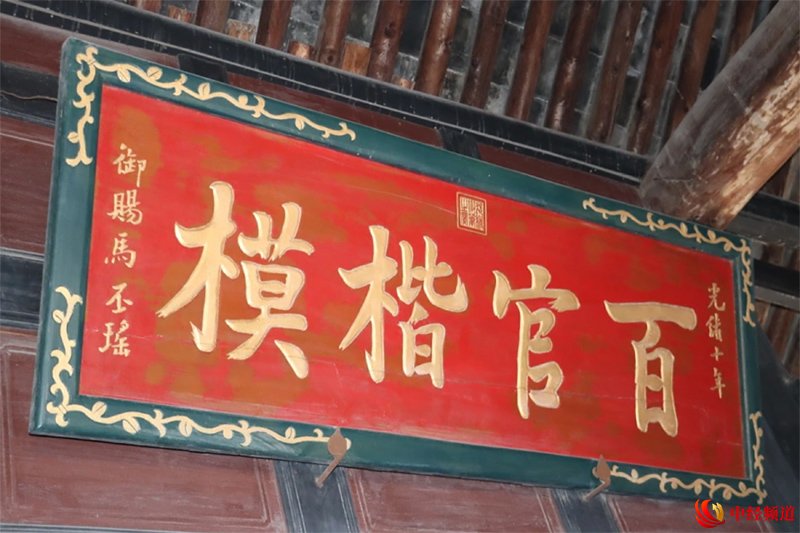 光緒十年
百官楷模
御賜馬丕瑤
中经频道